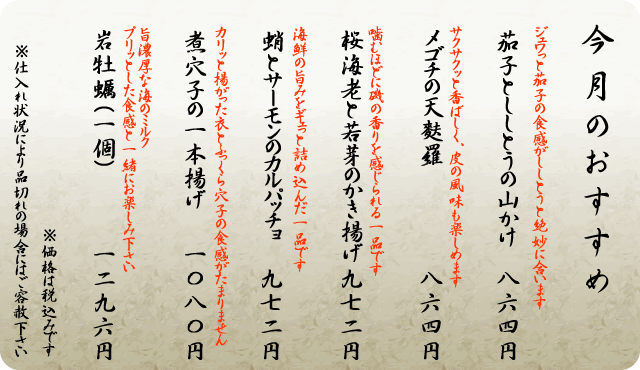 今月のおすすめ
ジュワっと茄子の食感がししとうと絶妙に合います
茄子とししとうの山かけ 八六四円
サクサクッと香ばしく、皮の風味も楽しめます
メゴチの天麩羅 八六四円
噛むほどに磯の香りを感じられる一品です
桜海老と若芽のかき揚げ 九七二円
海鮮の旨みをギュっと詰め込んだ一品です
蛸とサーモンのカルパッチョ 九七二円
カリッと揚がった衣とふっくら穴子の食感がたまりません
煮穴子の一本揚げ 一〇八〇円
旨濃厚な海のミルク
プリッとした食感と一緒にお楽しみ下さい
岩牡蠣(一個) 一二九六円
※価格は税込みです
※仕入れ状況により品切れの場合はご容赦下さい